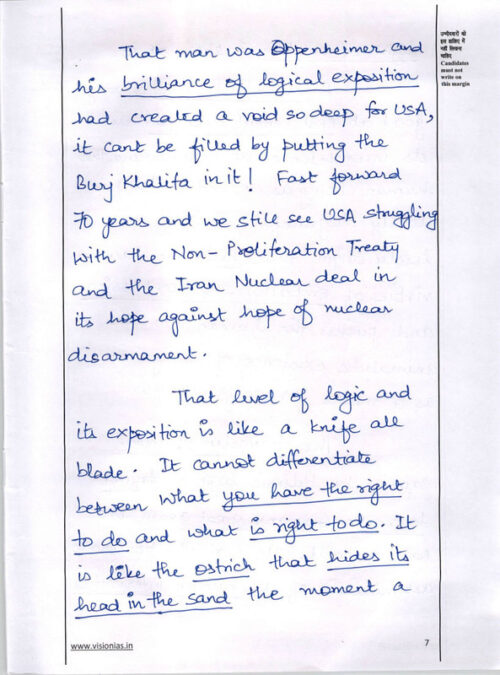 That man was Oppenheimer and
his brilliance of logical exposition
had created a void so deep for USA,
it cant be filled by putting the
Burj Khalifa in it! Fast forward
70 years and we still see USA struggling
with the Non-Proliferation Treaty
and the Iran Nuclear deal in
its hope against hope of nuclear
disarmament.
That level of logic and
its exposition is like a knife all
blade. It cannot differentiate
between what you have the right
to do and what is right to do. It
is like the ostrich that hides its
head in the sand the moment a
उम्मीदवारों को
इस हाशिए में
नहीं लिखना
चाहिए
Candidates
must not
write on
this margin
www.visionias.in
7